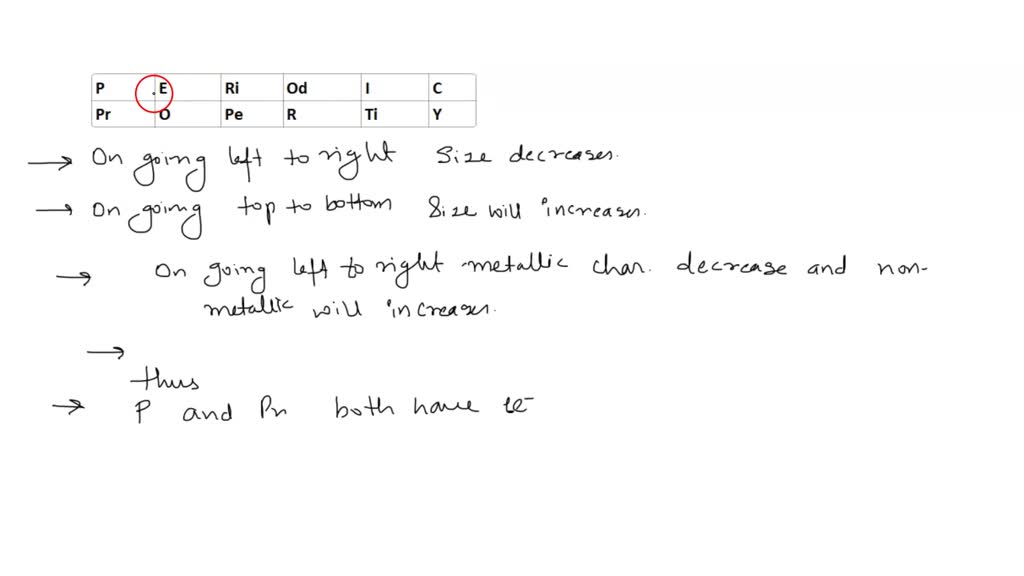 P E Ri Od I C
Pr O Pe R Ti Y
→ On going left to right size decreases.
→ On going top to bottom size will increases.
→ On going left to right metallic char. decrease and non-
metallic will increases.
→
thus
→ P and Pr both have 1e-